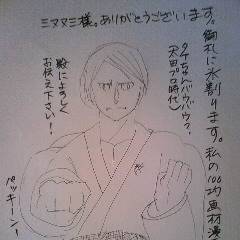 ミマヌミ様。ありがとうございます。
御礼に水割ります。私の100均画材漫
タイちゃんバウバウ?
(太田プロ時代)
殿によろしく
お伝え下さい!
パッキーン!